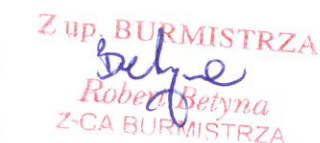 Z up. BURMISTRZA
Betyna
Robert Betyna
Z-CA BURMISTRZA